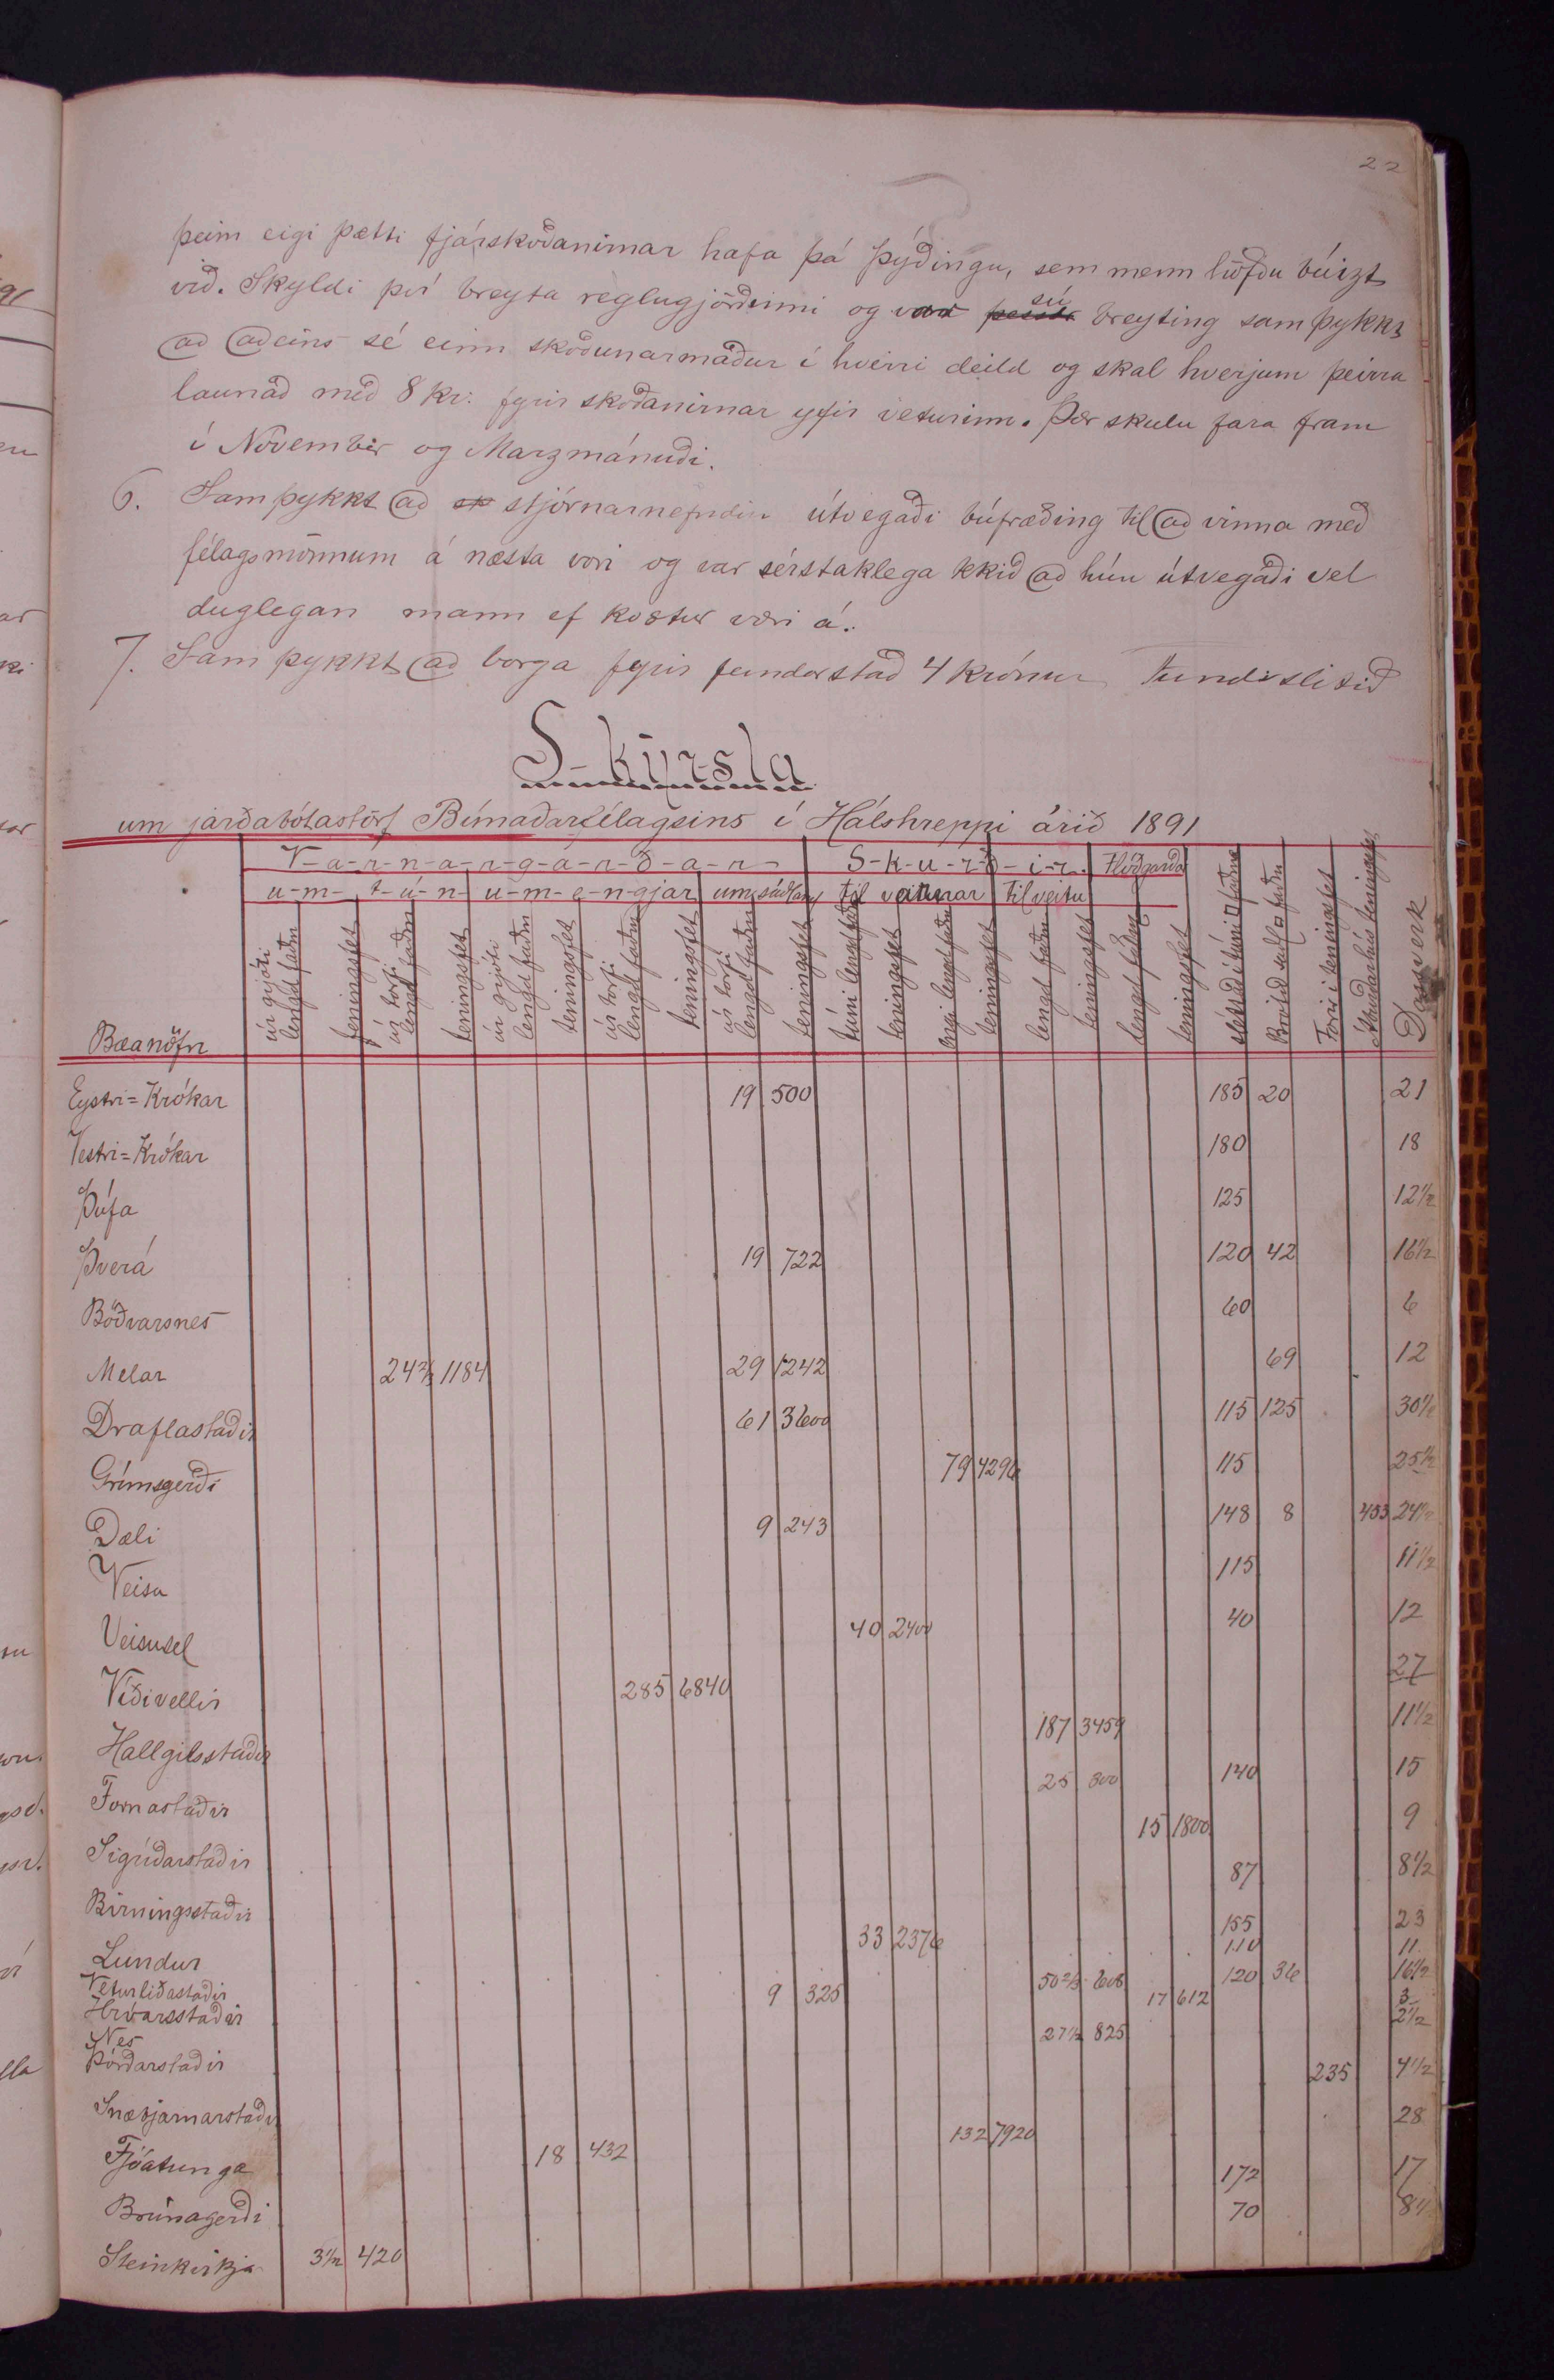 22
þeim eigi þætti fjárskoðanirnar hafa þá þýðingu, sem menn höfðu búizt
við. Skyldi því breyta reglugjörðinni og var þessi sú breyting samþykkt
að aðeins sé einn skoðunarmaður í hverri deild og skal hverjum þeirra
launað með 8 kr. fyrir skoðanirnar yfir veturinn. Þær skulu fara fram
í November og Marzmánuði.
6. Samþykkt að sk stjórnarnefndin útvegaði búfræðing til að vinna með
félagsmönnum á næsta vori og var sérstaklega kkið að hún útvegaði vel
duglegan mann ef kostur væri á.
7. Samþykkt að borga fyrir fundarstað 4 krónur Fundi slitið
S-kýr-sla
um jarðabótastörf Búnaðarfélagsins í Hálshreppi árið 1891
V-a-r-n-a-r-g-a-r-ð-a-r S-k-u-r-ð-i-r. Flóðgarða
u-m- t-ú-n u-m-e-n-gjar um sáðland til varnar til veitu
Bæanöfn úr grjóti lengd faðm teningsfet úr torfi lengd faðm teningsfet úr grjóti lengd faðm teningsfet úr torfi lengd faðm teningsfet úr torfi lengd faðm teningsfet túni lengd faðm teningsfet engi lengd faðm teningsfet lengd faðm teningsfet lengd faðm teningsfet sléttað í túni □ faðma Brotið sáðl □ faðm Forir í teningsfet Áburðarhús teningsfet Dagsverk
Eystri=Krókar 19 500 185 20 21
Vestri=Krókar 180 18
Þúfa 125 12½
Þverá 19 722 120 42 16½
Böðvarsnes 60 6
Melar 24⅔ 1184 29 1242 69 12
Draflastaðir 61 3600 115 125 30½
Grímsgerði 79 4296 115 25½
Dæli 9 243 148 8 433 24½
Veisa 115 11½
Veisusel 40 2400 40 12
Víðivellir 285 6840 27
Hallgilsstaðir 187 3459 11½
Fornastaðir 25 300 140 15
Sigríðarstaðir 15 1800 9
Birningsstaðir 87 8½
Lundur 33 2376 155 23
Veturliðastaðir 110 11
Hróarsstaðir 9 325 50⅔ 608 120 36 16½
Nes 17 612 3
Þórðarstaðir 27½ 825 2½
Snæbjarnarstaðir 235 4½
Fjóatunga 18 432 132 7920 28
Brúnagerði 172 17
Steinkirkja 3½ 420 70 8½